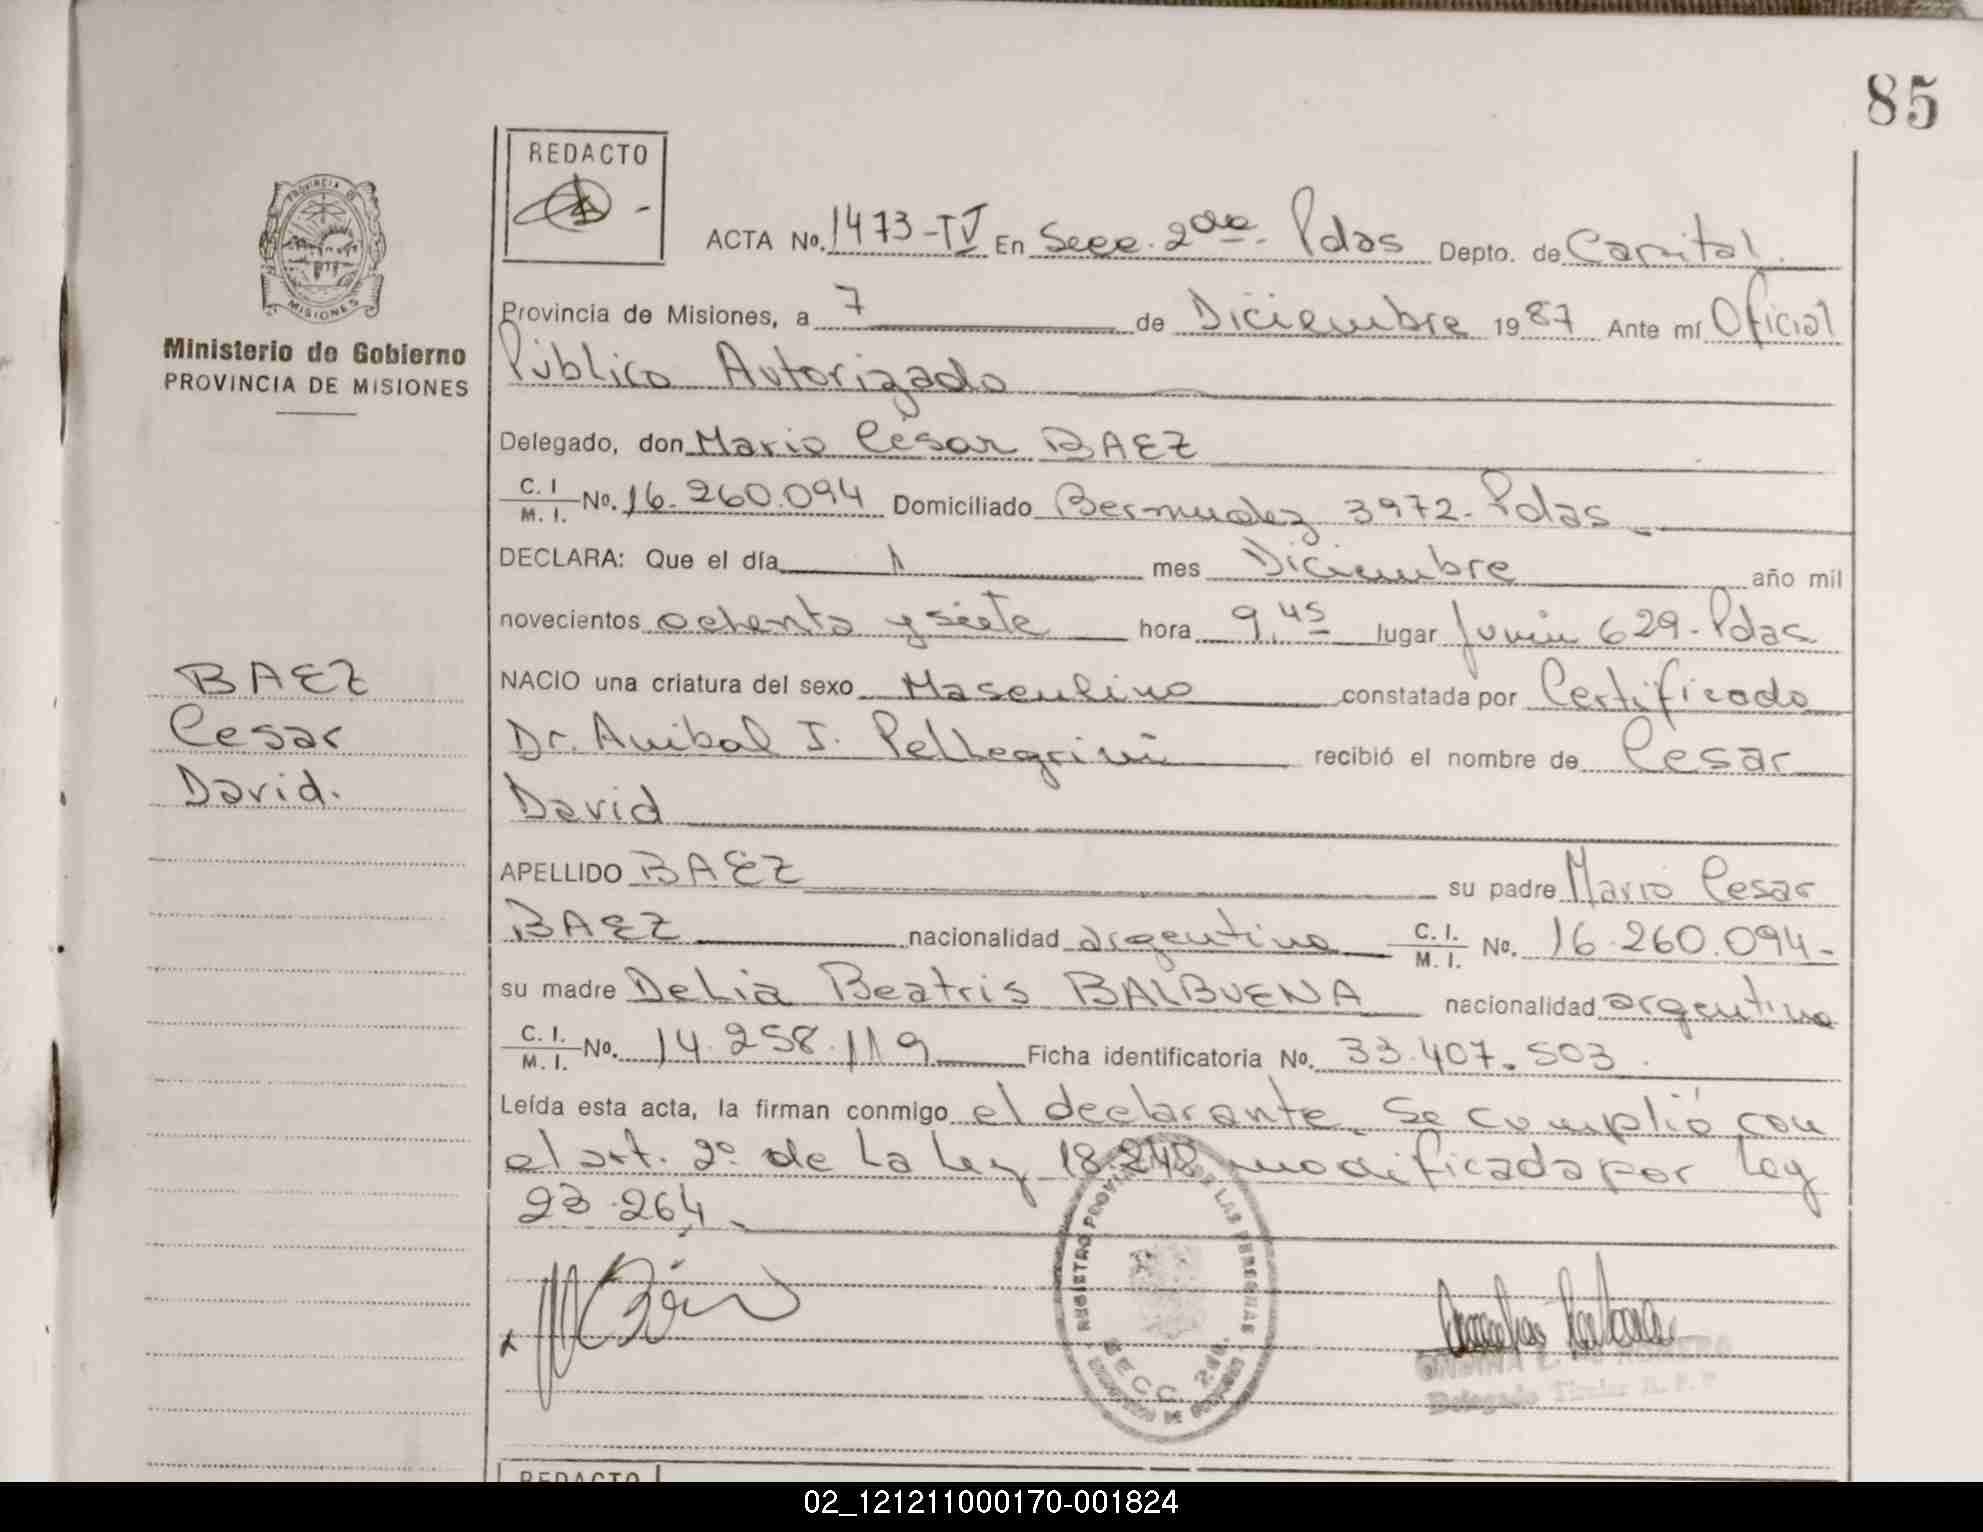 85
REDACTO
ACTA No. 1473-IV En Secc. 2da. Pdas Depto. de Capital.
PROVINCIA DE
MISIONES
Ministerio de Gobierno
PROVINCIA DE MISIONES
Provincia de Misiones, a 7 de Diciembre 1987 Ante mí Oficial
Público Autorizado
Delegado, don Mario César BAEZ
C. I. / M. I. No. 16.260.094 Domiciliado Bermudez 3972. Pdas
DECLARA: Que el día 1 mes Diciembre año mil
novecientos ochenta y siete hora 9,45 lugar Junín 629- Pdas
NACIO una criatura del sexo Masculino constatada por Certificado
Dr. Anibal J. Pellegrini recibió el nombre de Cesar
David
BAEZ
Cesar
David.
APELLIDO BAEZ su padre Mario Cesar
BAEZ nacionalidad argentina C. I. / M. I. No. 16.260.094-
su madre Delia Beatris BALBUENA nacionalidad argentina
C. I. / M. I. No. 14.258.119 Ficha identificatoria No. 33.407.503.
Leída esta acta, la firman conmigo el declarante. Se cumplió con
el art. 2º de la Ley 18.248 modificada por Ley
23.264.
REGISTRO PROVINCIAL DE LAS PERSONAS
SECC. 2da.
Delegado Titular R. P. P
REDACTO
02_121211000170-001824